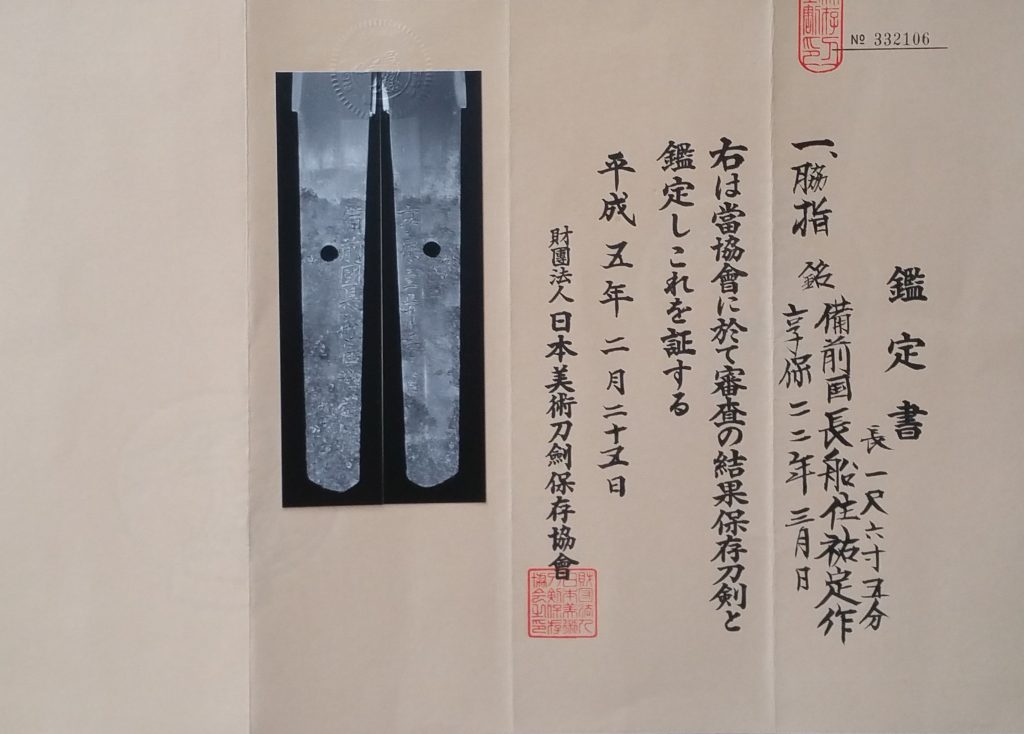 № 332106
鑑定書
長一尺六寸五分
一、脇指 銘 備前国長船住祐定作
享保二二年三月日
右は當協會に於て審査の結果保存刀剣と
鑑定しこれを証する
平成五年二月二十五日
財團法人日本美術刀劍保存協會
財団法人
日本美術
刀剣保存
協会之印